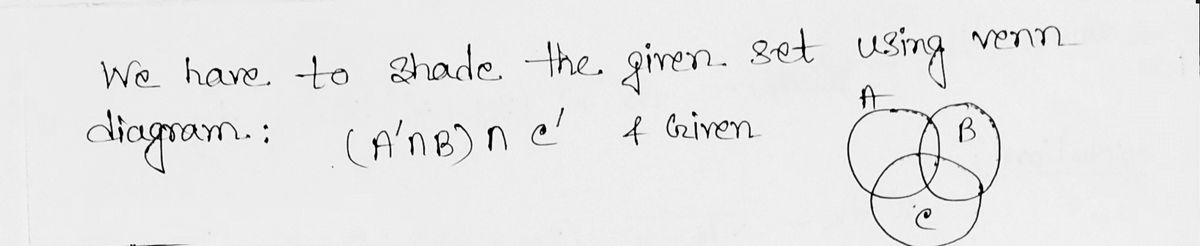 We have to shade the given set using venn
diagram.: (A'∩B)∩ C' & Given
A
B
C